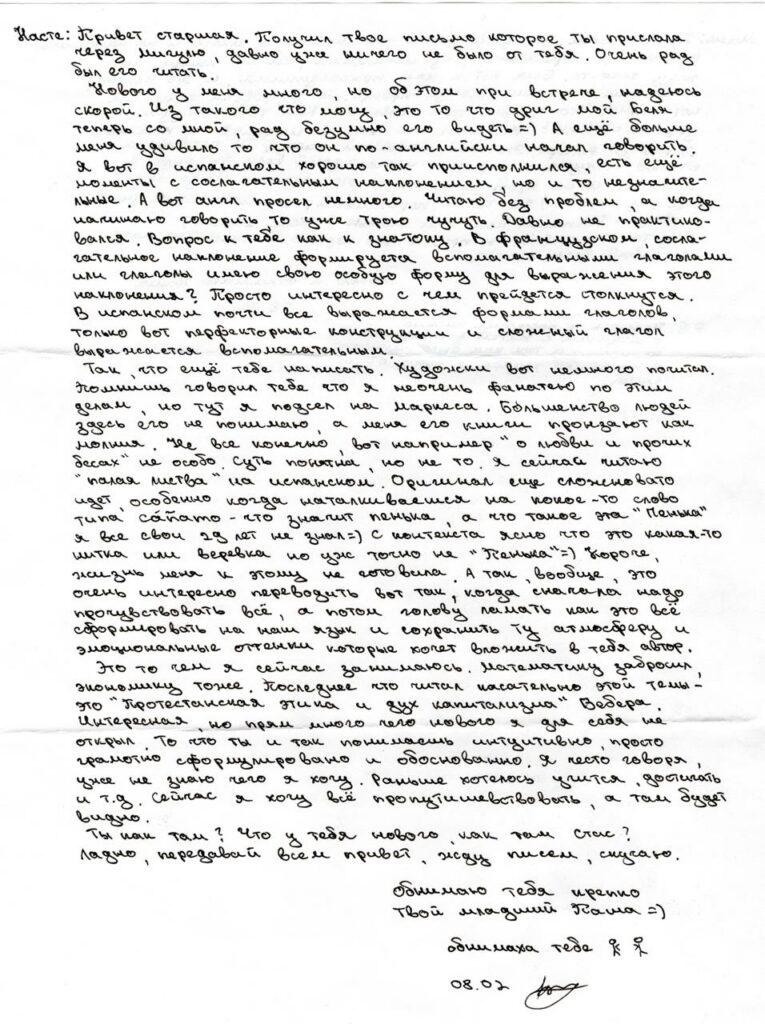 Насте: Привет старшая. Получил твое письмо которое ты прислала
через мигулю, давно уже ничего не было от тебя. Очень рад
был его читать.
Нового у меня много, но об этом при встрече, надеюсь
скорой. Из такого что могу, это то что друг мой Беля
теперь со мной, рад безумно его видеть =) А ещё больше
меня удивило то что он по-английски начал говорить.
Я вот в испанском хорошо так приисполнился, есть ещё
моменты с сослагательным наклонением, но и то незначите-
льные. А вот англ просел немного. Читаю без проблем, а когда
начинаю говорить то уже трою чучуть. Давно не практико-
вался. Вопрос к тебе как к знатоку. В французском, сосла-
гательное наклонение формируется вспомагательными глаголами
или глаголы имею свою особую форму для выражения этого
наклонения? Просто интересно с чем прейдется столкнутся.
В испанском почти все выражается формами глаголов,
только вот перфекторные конструкции и сложный глагол
выражается вспомагательным.
Так, что ещё тебе написать. Художки вот немного почитал.
Помнишь говорил тебе что я неочень фанатею по этим
делам, но тут я подсел на маркеса. Большенство людей
здесь его не понимаю, а меня его книги пронзают как
молния. Не все конечно, вот например "о любви и прочих
бесах" не особо. Суть понятна, но не то. Я сейчас читаю
"палая листва" на испанском. Оригинал еще сложновато
идет, особенно когда наталкиваешся на кокое-то слово
типа cáñamo - что значит пенька, а что такое эта "Пенька"
я все свои 29 лет не знал =) С контекста ясно что это какая-то
нитка или веревка но уж точно не "Пенька" =) Короче,
жизнь меня к этому не готовила. А так, вообще, это
очень интересно переводить вот так, когда сначала надо
прочувствовать всё, а потом голову ламать как это всё
сформировать на наш язык и сохранить ту атмосферу и
эмоциональные оттенки которые хочет вложить в тебя автор.
Это то чем я сейчас занимаюсь. Математику забросил,
экономику тоже. Последнее что читал касательно этой темы-
это "Протестанская этика и дух капитализма" Вебера.
Интересная, но прям много чего нового я для себя не
открыл. То что ты и так понимаешь интуитивно, просто
грамотно сформулировано и обоснованно. Я често говоря,
уже не знаю чего я хочу. Раньше хотелось учится, достигать
и т.д. Сейчас я хочу всё пропутишевствовать, а там будет
видно.
Ты как там? Что у тебя нового, как там стас?
Ладно, передавай всем привет, жду писем, скучаю.
Обнимаю тебя крепко
твой младший Паша =)
обнимаха тебе
08.02